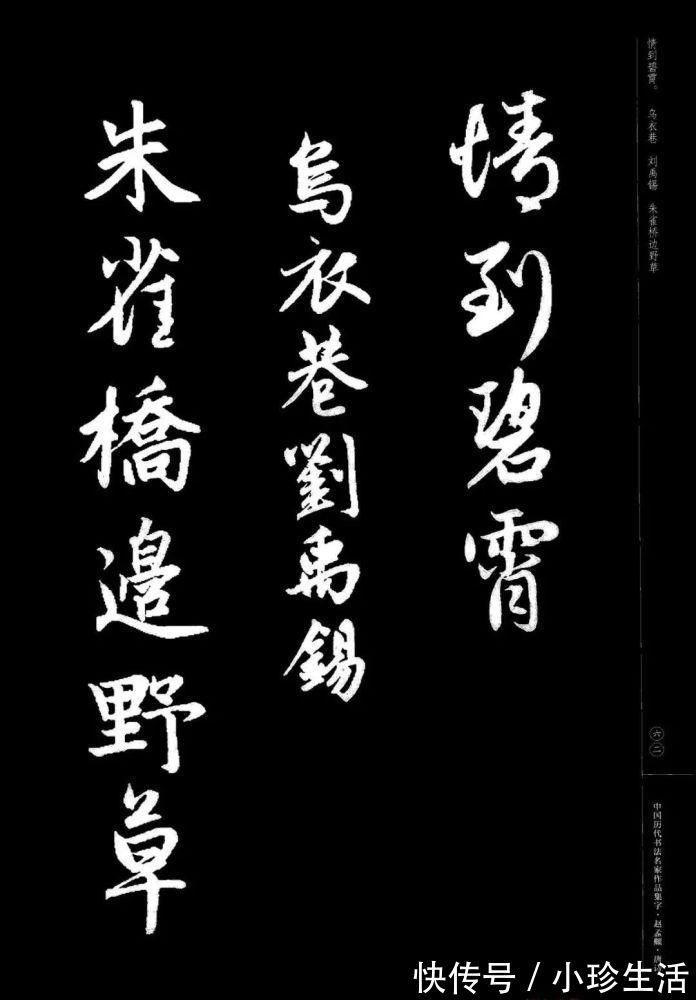 情到碧霄。 乌衣巷 刘禹锡 朱雀桥边野草
情到碧霄
烏衣巷劉禹錫
朱雀橋邊野草
六二
中国历代书法名家作品集字·赵孟頫·唐诗
快传号／小珍生活